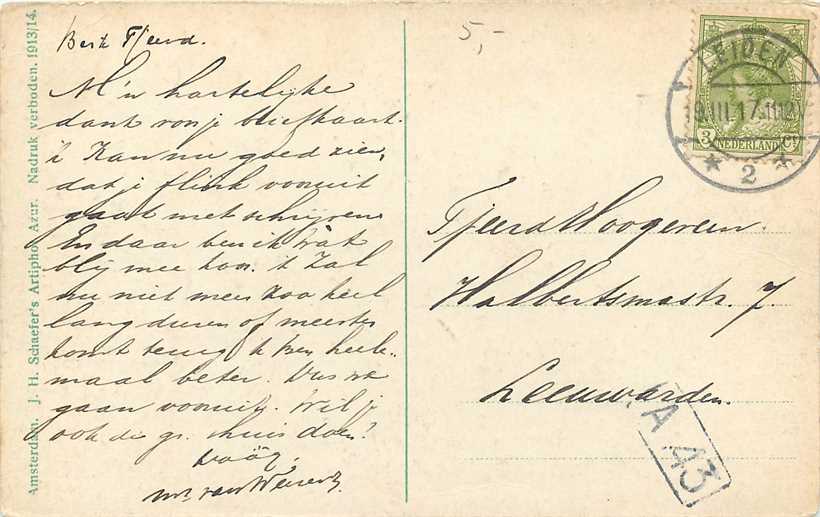 Amsterdam. J. H. Schaefer's Artiphot Azur. Nadruk verboden. 1913/14.
Tjeerd.
M'n hartelijke
dank voor je briefkaart.
'k Kan nu goed zien,
dat je flink vooruit
gaat met schrijven
En daar ben ik wat
blij mee hoor. 't Zal
nu niet meer zoo heel
lang duren of meester
komt terug 'k ben heele-
maal beter. Dus we
gaan vooruit. Wil je
ook de gr. thuis doen?
Dààg.
mr. van
5,-
LEIDEN
9.III.17.
3 NEDERLAND Ct
2
Tjeerd Hoogeveen.
Halbertsmastr. 7.
Leeuwarden.
A 43